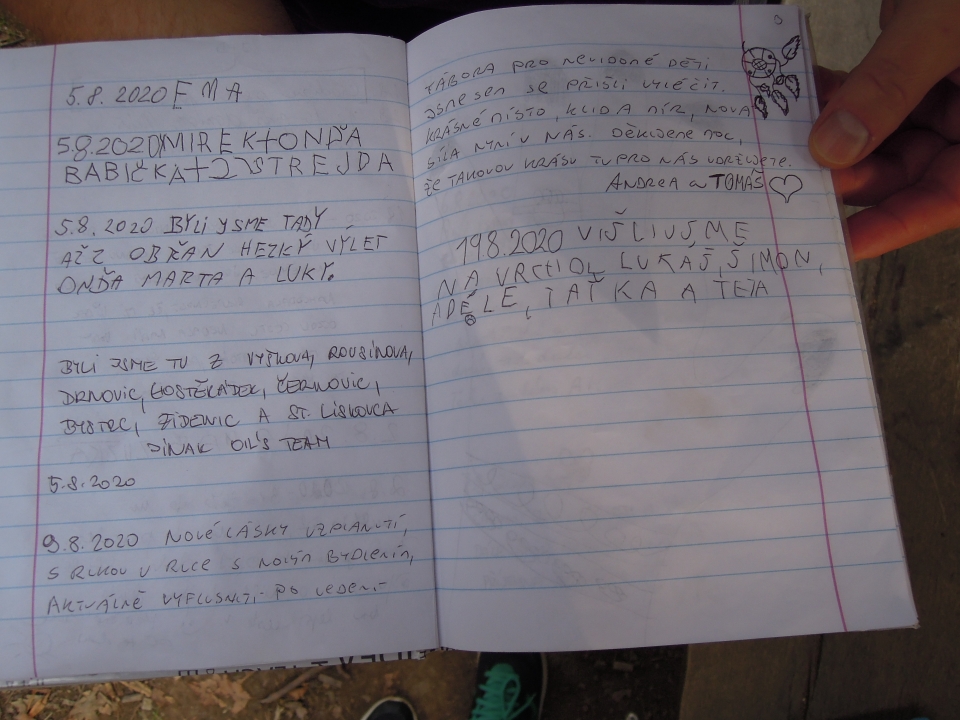 5.8.2020 EMA
5.8.2020 MIREK+ONĎA
BABIČKA+ STREJDA
5.8.2020 BYLI JSME TADY
AŽ Z OBŘAN HEZKÝ VÝLET
ONĎA MARTA A LUKY.
BYLI JSME TU Z VYŠKOVA, ROUSÍNOVA,
DRNOVIC, HOSTĚRÁDEK, ČERNOVIC,
BYSTRC, ŽIDENIC A ST. LÍSKOVCA
JINAK OIL'S TEAM
5.8.2020
9.8.2020 NOVÉ LÁSKY VZPLANUTÍ,
S RUKOU V RUCE S NOVÝM BYDLENÍM,
AKTUÁLNĚ PO VEDENÍ
9
TÁBORA PRO NEVIDOMÉ DĚTI
JSME SEM SE PŘIŠLI VYLÉČIT.
KRÁSNÉ MÍSTO, KLID A MÍR, NOVÁ
SÍLA NYNÍ V NÁS. DĚKUJEME MOC,
ŽE TAKOVOU KRÁSU TU PRO NÁS UDRŽUJETE.
ANDREA a TOMÁŠ
19.8.2020 VIŠLIJSME
NA VRCHOL LUKÁŠ, ŠIMON,
ADÉLE, TAŤKA A TETA